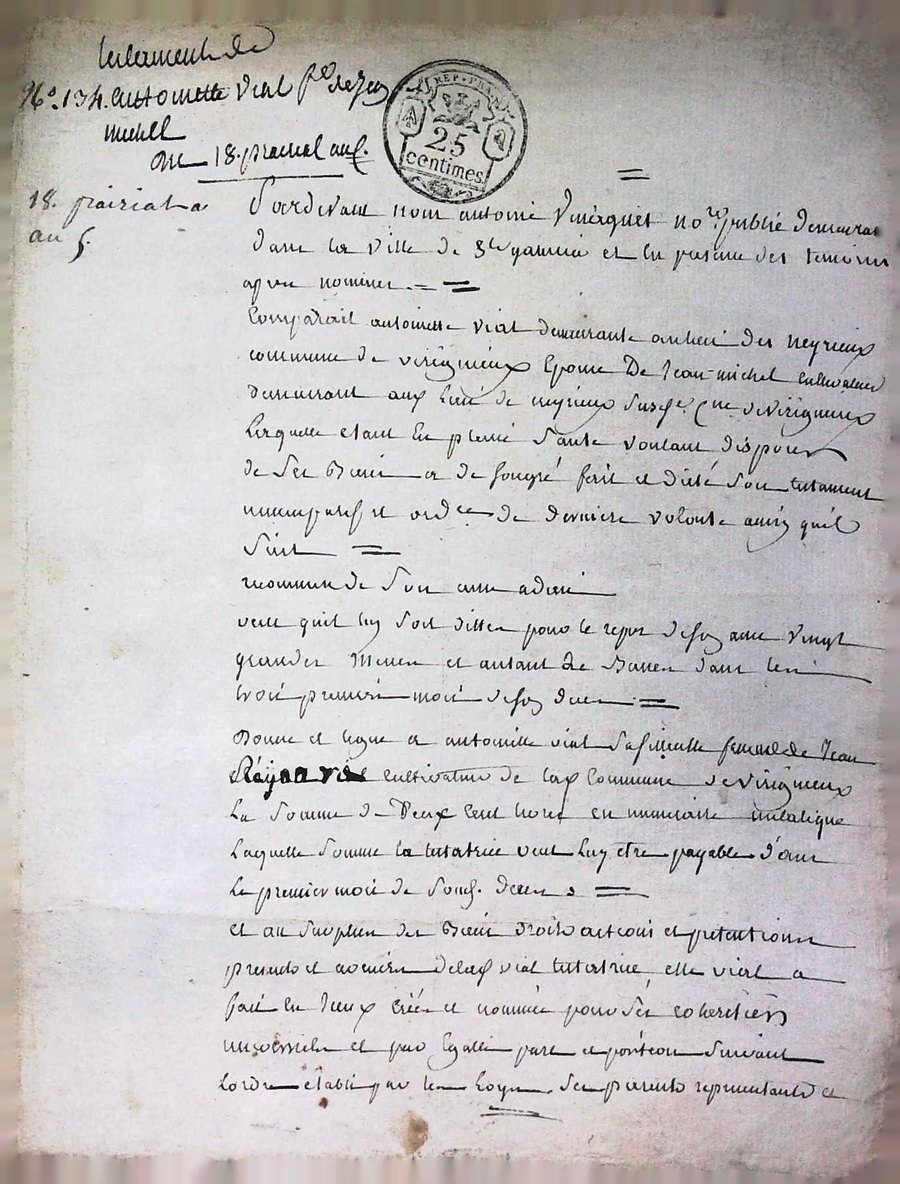 testament de
No. 134. antoinette vial fe de jean
michel
du 18. prairial an 5.
REP. FRA.
25
centimes.
18. prairial
an 5.
Pardevant nous antoine no.re publié demeurant
dans la ville de St galmier et en presence des temoins
apres nommes. =
Comparait antoinette vial demeurante au lieu des neyrieux
commune de virigneux Epouse De Jean michel cultivateur
demeurant aux lieu de neyrieux susd. Cne de Virigneux
Laquelle etant En pleine Sante voulant disposer
de Ses Biens a de son gré fait et dicté Son testament
nuncupatif et ordce de derniere volonte ainsy quil
Suit =
recommende Son ame a dieu
veut quil luy Soit dittes pour le repos de son ame vingt
grandes Messes et autant de Basses dans les
trois premiers mois de son deces =
Donne et legue a antoinette vial Sa filleulle femme de Jean
cultivateur de lad Commune de Virigneux
La Somme de Deux Cent livres en numeraire metalique
Laquelle Somme la testatrice veut Luy etre payable dans
Le premier mois de Sond. deces =
et au Surplus des Biens droits actions et pretentions
presents et avenirs de lad vial testatrice, elle vial a
fait En Iceux Créé et nommée pour Sés coheritiérs
universels et par Egalle part et portion Suivant
Lordre etabli par les Loyx, Ses parents representants et